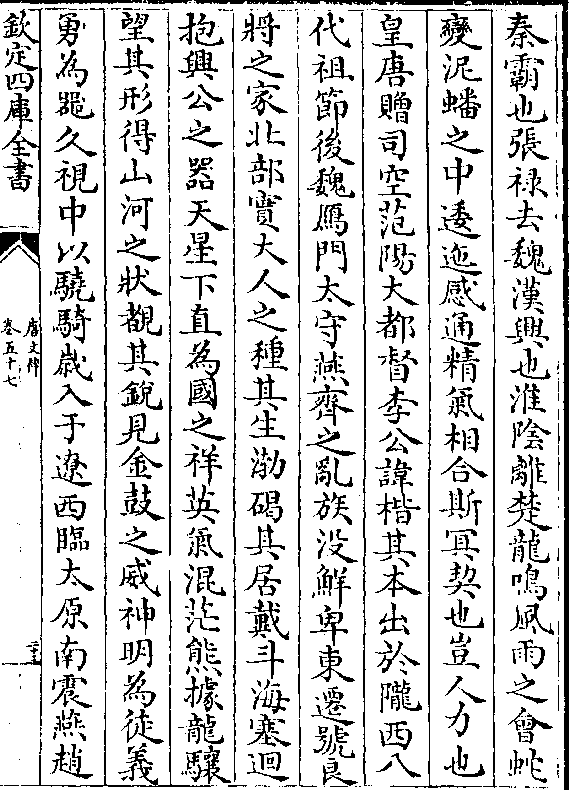 秦霸也張禄去魏漢興也淮陰離楚龍鳴風雨之會蛇
變泥蟠之中逶迤感通精氣相合斯冥契也豈人力也
皇唐贈司空范陽大都督李公諱楷其本出於隴西八
代祖節後魏鴈門太守燕齊之亂族没鮮卑東遷號良
將之家北部實大人之種其生渤碣其居戴斗海塞迴
抱興公之器天星下直為國之祥英氣混茫熊據龍驤
望其形得山河之狀覩其銳見金鼓之威神明為徒義
勇為器久視中以驍騎歲入于遼西臨太原南震燕趙
欽定四庫全書
唐文粹
卷五十七